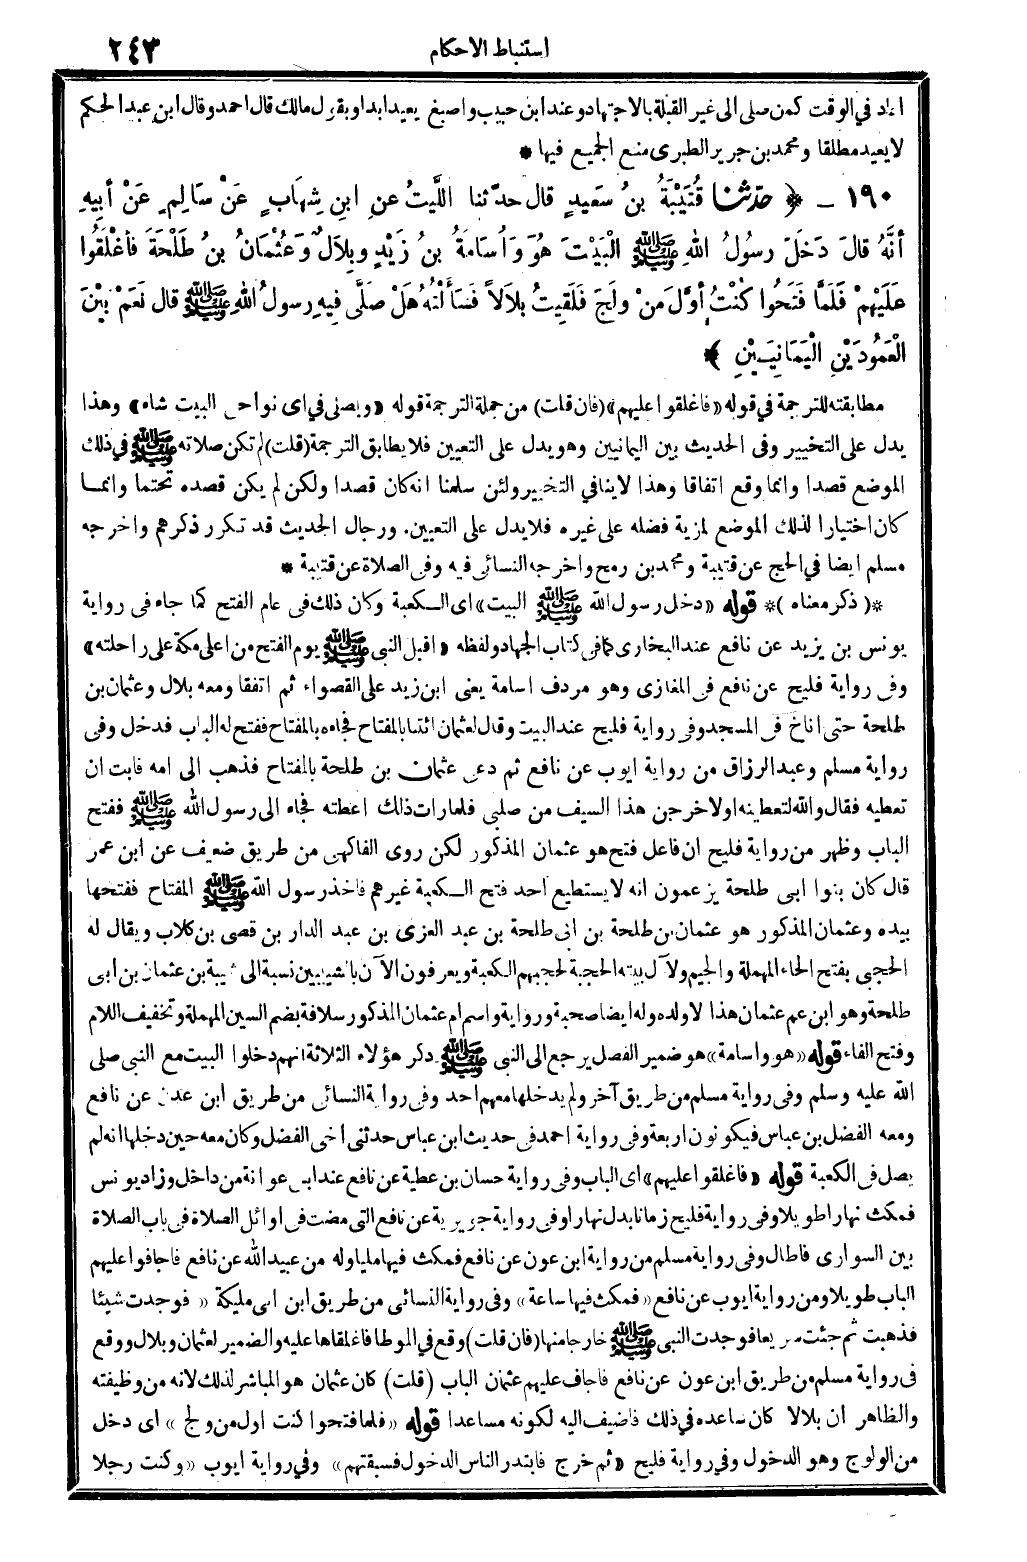 استنباط الاحكام
٢٤٣
اعاد في الوقت كمن صلى الى غير القبلة بالاجتهاد وعند ابن حبيب واصبغ يعيد ابدا وبقول مالك قال احمد وقال ابن عبد الحكم
لا يعيد مطلقا ومحمد بن جرير الطبرى منع الجميع فيها *
١٩٠ - ﴿ حدّثنا قُتَيْبَةُ بنُ سَعيدٍ قال حدّثنا اللَّيْثُ عنِ ابنِ شِهَابٍ عَنْ سَالِمٍ عَنْ أبِيهِ
أنَّهُ قالَ دَخَلَ رسولُ اللهِ ﷺ الْبَيْتَ هُوَ وَأُسَامَةُ بنُ زَيْدٍ وبِلاَلٌ وَعُثْمَانُ بنُ طَلْحَةَ فأغْلَقُوا
عَلَيْهِمْ فَلَمَّا فَتَحُوا كُنْتُ أوَّلَ مَنْ ولَجَ فَلَقِيتُ بِلاَلاً فَسَألْتُهُ هَلْ صَلَّى فِيهِ رسولُ اللهِ ﷺ قال نَعَمْ بَيْنَ
الْعَمُودَيْنِ الْيَمَانِيَيْنِ ﴾
مطابقته للترجمة في قوله «فاغلقوا عليهم» (فان قلت) من جملة الترجمة قوله «ويصلى في اى نواحى البيت شاء» وهذا
يدل على التخيير وفى الحديث بين اليمانيين وهو يدل على التعيين فلا يطابق الترجمة (قلت) لم تكن صلاته ﷺ في ذلك
الموضع قصدا وانما وقع اتفاقا وهذا لا ينافي التخيير ولئن سلمنا انه كان قصدا ولكن لم يكن قصده تحتما وانما
كان اختيارا لذلك الموضع لمزية فضله على غيره فلا يدل على التعيين. ورجال الحديث قد تكرر ذكرهم واخرجه
مسلم ايضا في الحج عن قتيبة ومحمد بن رمح واخرجه النسائى فيه وفى الصلاة عن قتيبة *
*(ذكر معناه)* قوله «دخل رسول الله ﷺ البيت» اى الكعبة وكان ذلك فى عام الفتح كما جاء فى رواية
يونس بن يزيد عن نافع عند البخارى كما فى كتاب الجهاد ولفظه «اقبل النبى ﷺ يوم الفتح من اعلى مكة على راحلته»
وفى رواية فليح عن نافع فى المغازى وهو مردف اسامة يعنى ابن زيد على القصواء ثم اتفقا ومعه بلال وعثمان بن
طلحة حتى اناخ فى المسجد وفى رواية فليح عند البيت وقال لعثمان ائتنا بالمفتاح فجاءه بالمفتاح ففتح له الباب فدخل وفى
رواية مسلم وعبد الرزاق من رواية ايوب عن نافع ثم دعى عثمان بن طلحة بالمفتاح فذهب الى امه فابت ان
تعطيه فقال والله لتعطينه او لاخرجن هذا السيف من صلبى فلما رات ذلك اعطته فجاء الى رسول الله ﷺ ففتح
الباب وظهر من رواية فليح ان فاعل فتح هو عثمان المذكور لكن روى الفاكهى من طريق ضعيف عن ابن عمر
قال كان بنوا ابى طلحة يزعمون انه لا يستطيع احد فتح الكعبة غيرهم فاخذ رسول الله ﷺ المفتاح ففتحها
بيده وعثمان المذكور هو عثمان بن طلحة بن ابى طلحة بن عبد العزى بن عبد الدار بن قصى بن كلاب ويقال له
الحجبى بفتح الحاء المهملة والجيم ولآل بيته الحجبة لحجبهم الكعبة ويعرفون الآن بالشيبيين نسبة الى شيبة بن عثمان بن ابى
طلحة وهو ابن عم عثمان هذا لا ولده وله ايضا صحبة ورواية واسم ام عثمان المذكور سلافة بضم السين المهملة وتخفيف اللام
وفتح الفاء قوله «هو واسامة» هو ضمير الفصل يرجع الى النبى ﷺ ذكر هؤلاء الثلاثة انهم دخلوا البيت مع النبى صلى
الله عليه وسلم وفى رواية مسلم من طريق آخر ولم يدخلها معهم احد وفى رواية النسائى من طريق ابن عون عن نافع
ومعه الفضل بن عباس فيكونون اربعة وفى رواية احمد فى حديث ابن عباس حدثنى اخى الفضل وكان معه حين دخلها انه لم
يصل فى الكعبة قوله «فاغلقوا عليهم» اى الباب وفى رواية حسان بن عطية عن نافع عند ابى عوانة من داخل وزاد يونس
فمكث نهارا طويلا وفى رواية فليح زمانا بدل نهارا وفى رواية جويرية عن نافع التى مضت فى اوائل الصلاة فى باب الصلاة
بين السوارى فاطال وفى رواية مسلم من رواية ابن عون عن نافع فمكث فيها مليا وله من عبيد الله عن نافع فاجافوا عليهم
الباب طويلا ومن رواية ايوب عن نافع «فمكث فيها ساعة» وفى رواية النسائى من طريق ابن ابى مليكة «فوجدت شيئا
فذهبت ثم جئت سريعا فوجدت النبى ﷺ خارجا منها (فان قلت) وقع في الموطا فاغلقاها عليه والضمير لعثمان وبلال ووقع
فى رواية مسلم من طريق ابن عون عن نافع فاجاف عليهم عثمان الباب (قلت) كان عثمان هو المباشر لذلك لانه من وظيفته
والظاهر ان بلالا كان ساعده في ذلك فاضيف اليه لكونه مساعدا قوله «فلما فتحوا كنت اول من ولج» اى دخل
من الولوج وهو الدخول وفي رواية فليح «ثم خرج فابتدر الناس الدخول فسبقتهم» وفي رواية ايوب «وكنت رجلا